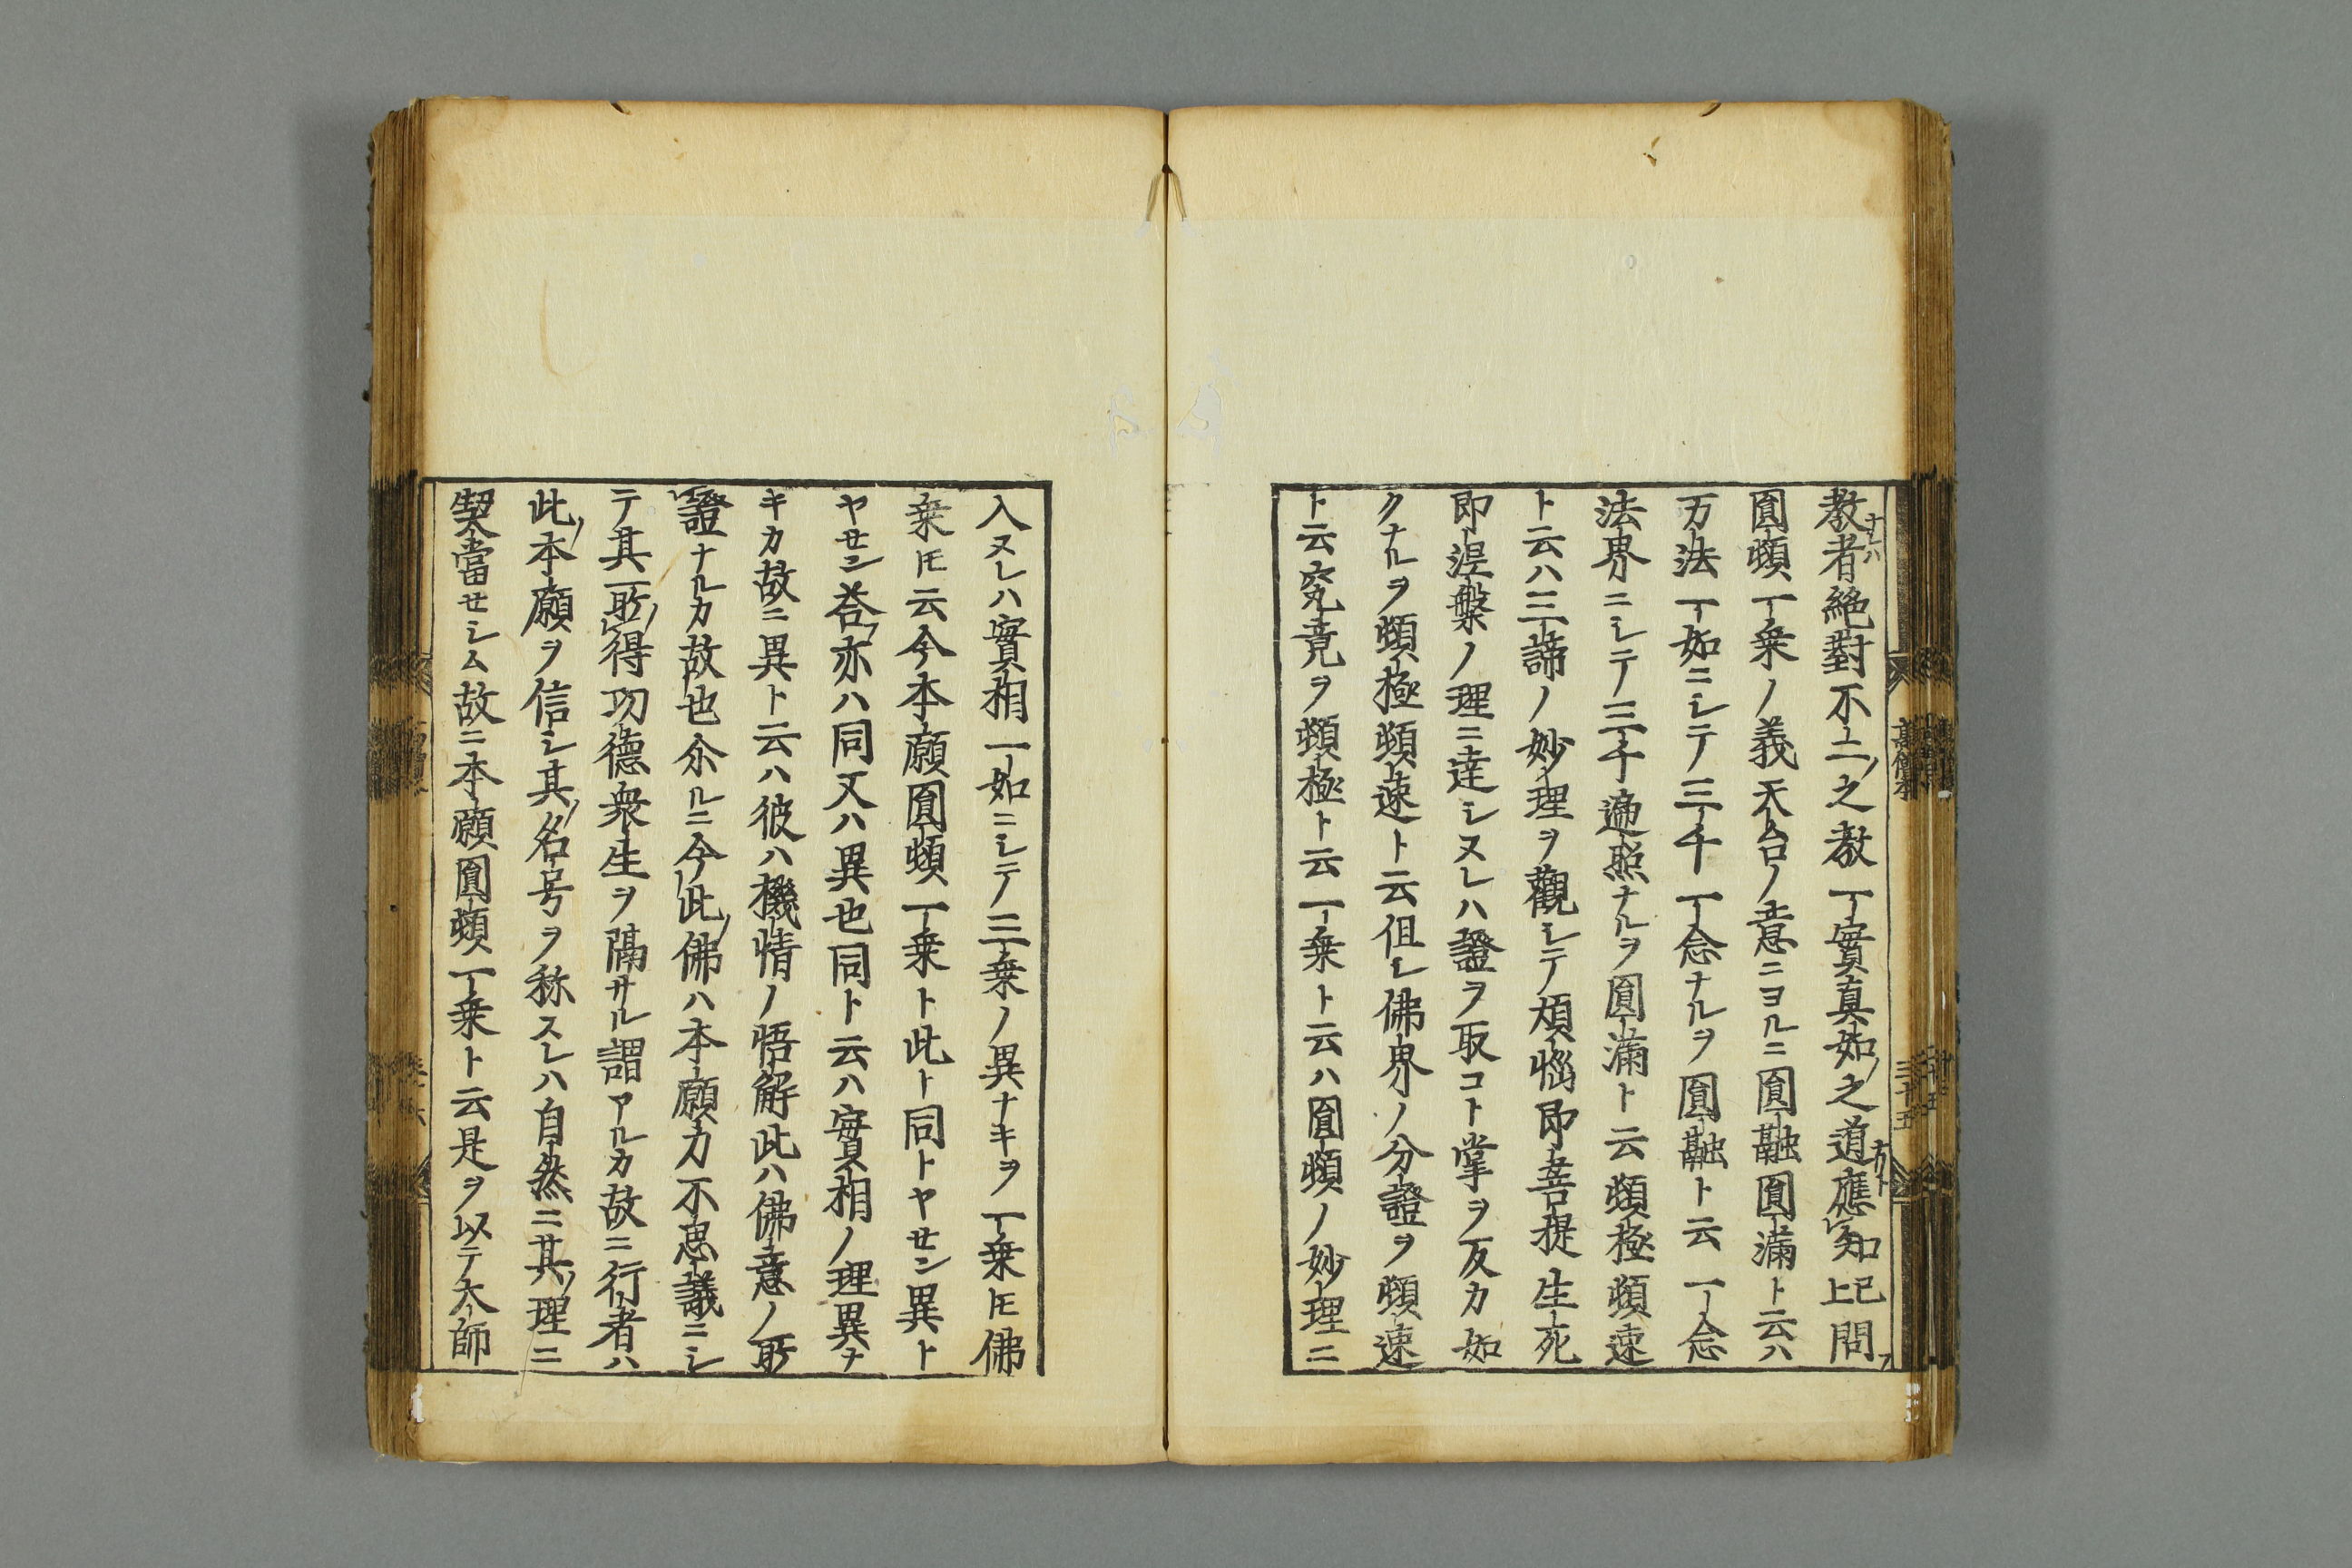 教者絶對不二之教一實真如之道應知已上問
圓頓一乗ノ義天台ノ意ニヨルニ圓融圓滿ト云ハ
万法一如ニシテ三千一念ナルヲ圓融ト云一念
法界ニシテ三千遍照ナルヲ圓滿ト云頓極頓速
ト云ハ三諦ノ妙理ヲ觀シテ煩惱即菩提生死
即涅槃ノ理ニ達シヌレハ證ヲ取コト掌ヲ反カ如
クナルヲ頓極頓速ト云但シ佛界ノ分證ヲ頓速
ト云究竟ヲ頓極ト云一乗ト云ハ圓頓ノ妙理ニ
入ヌレハ實相一如ニシテ三乗ノ異ナキヲ一乗トモ佛
乗トモ云今本願圓頓一乗ト此ト同トヤセン異ト
ヤセン荅亦ハ同又ハ異也同ト云ハ實相ノ理異ナ
キカ故ニ異ト云ハ彼ハ機情ノ悟解此ハ佛意ノ所
證ナルカ故也尒ルニ今此佛ハ本願力不思議ニシ
テ其所得功德衆生ヲ隔サル謂アルカ故ニ行者ハ
此本願ヲ信シ其名号ヲ称スレハ自然ニ其理ニ
契當セシム故ニ本願圓頓一乗ト云是ヲ以テ大師